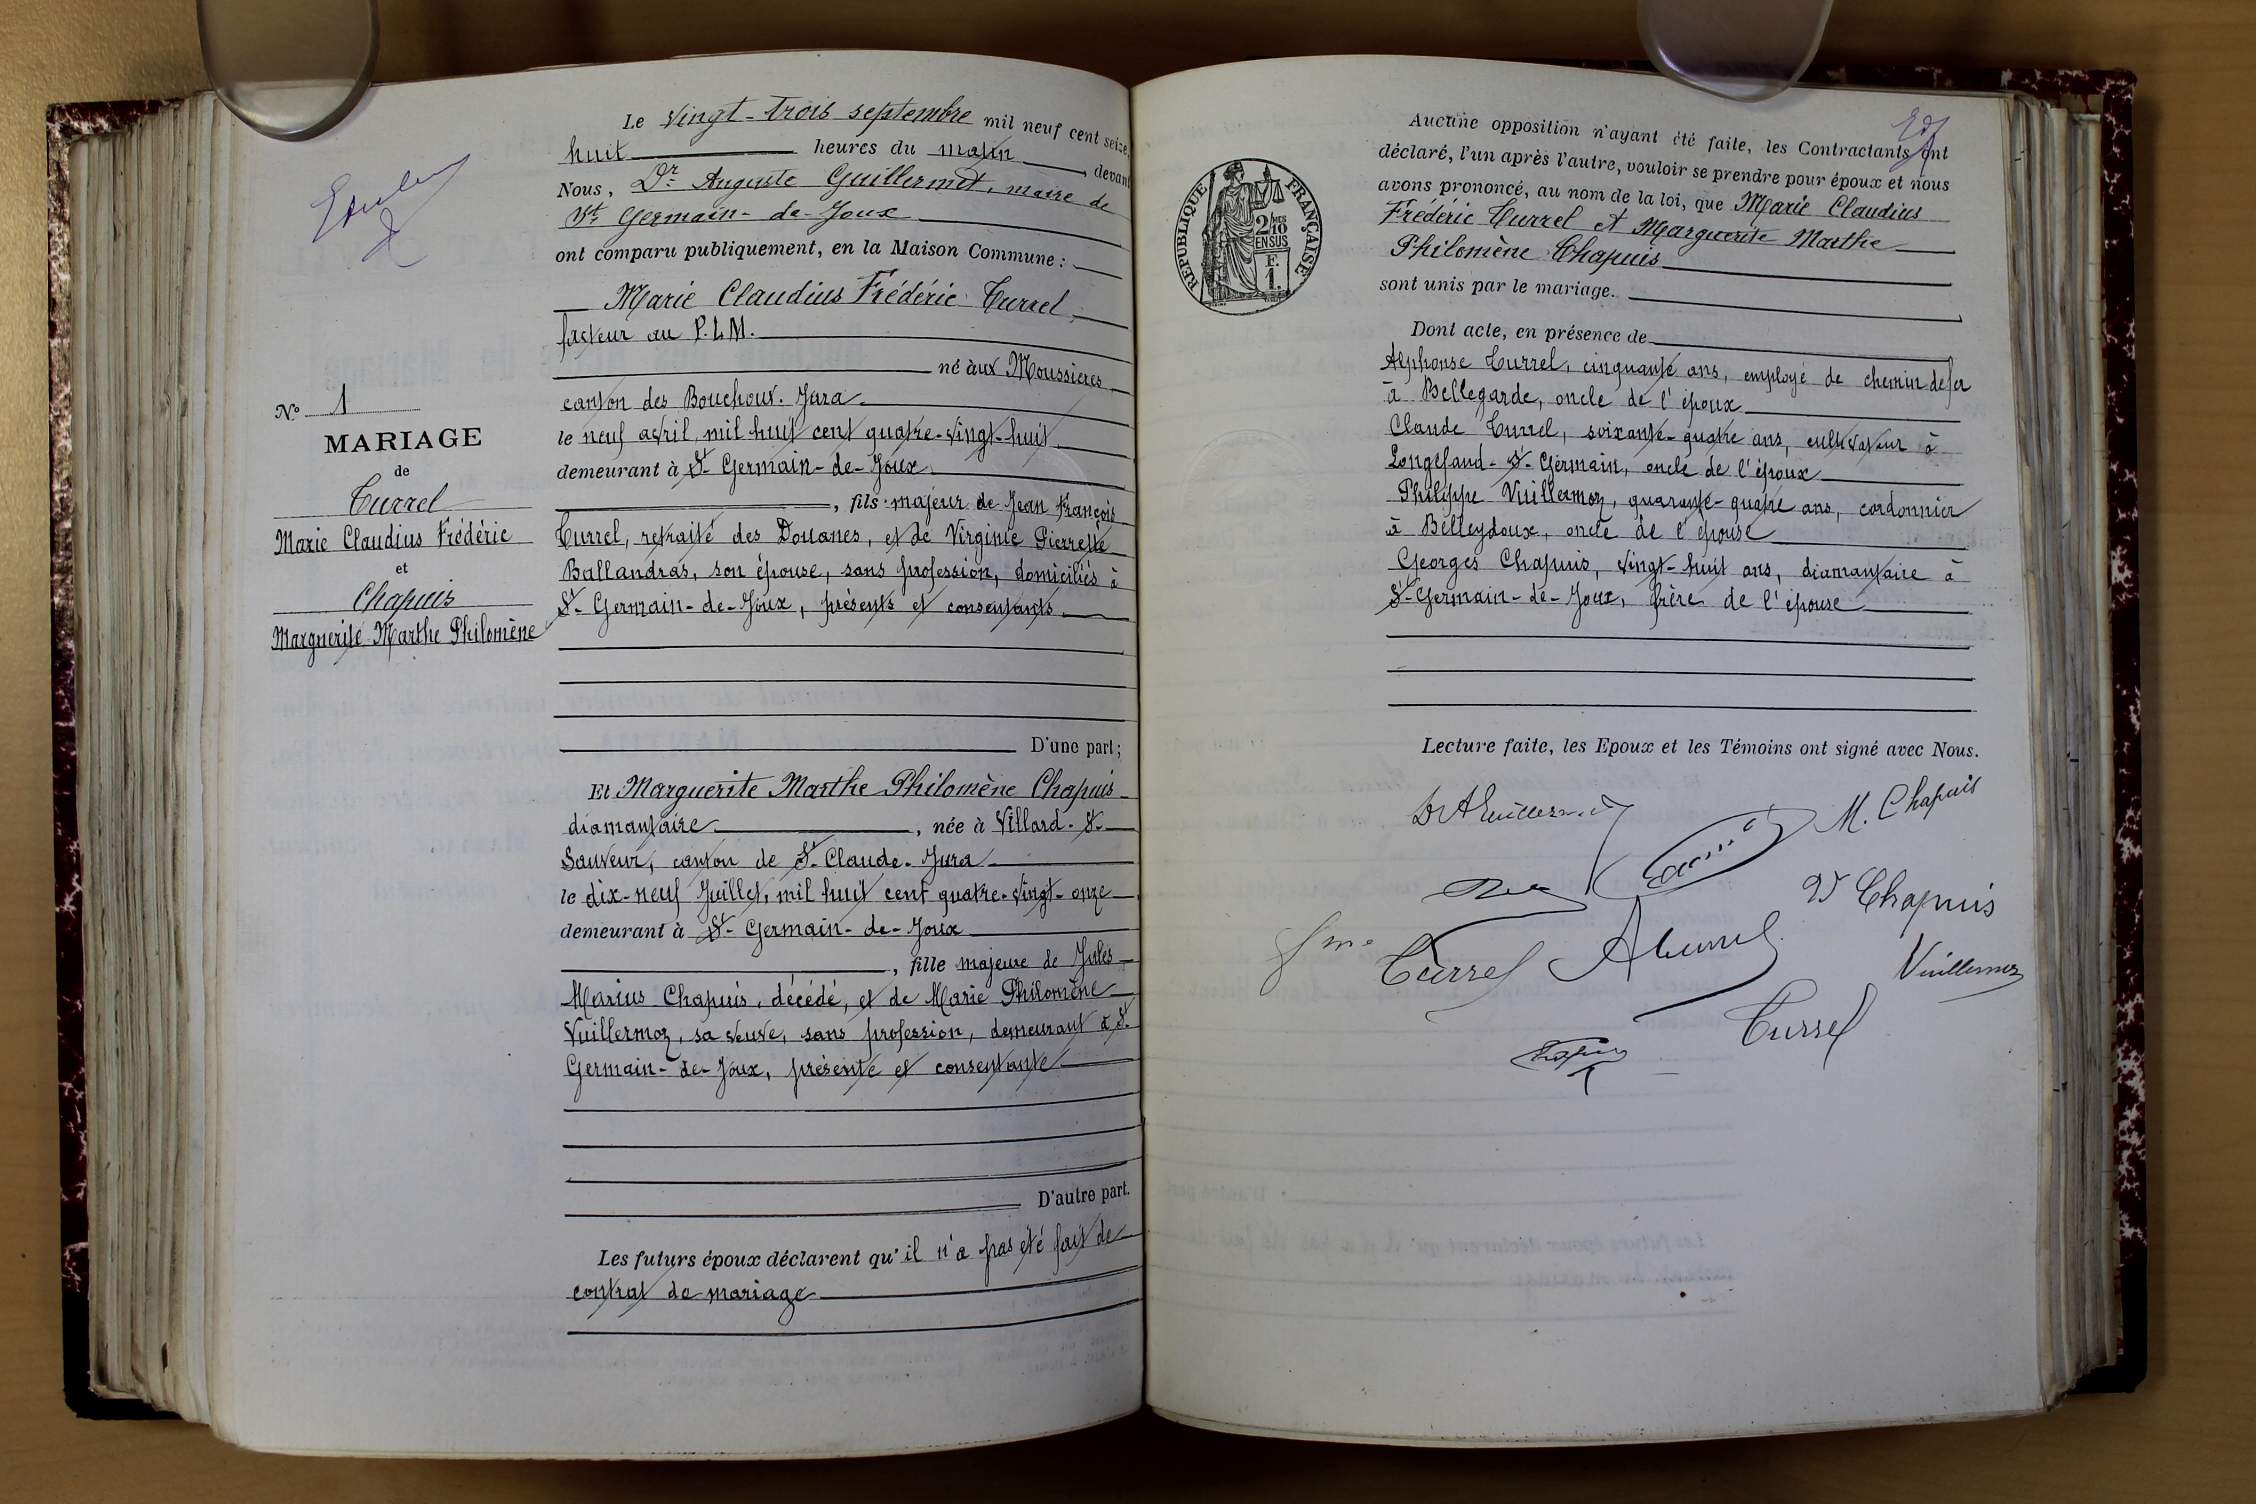 N.º 1
MARIAGE
de
Turrel
Marie Claudius Frédéric
et
Chapuis
Marguerite Marthe Philomène
Le Vingt-trois septembre mil neuf cent seize,
huit heures du matin, devant
Nous, Dr Auguste Guillermet, maire de
St Germain-de-Joux
ont comparu publiquement, en la Maison Commune :
Marie Claudius Frédéric Turrel,
facteur au P.L.M.
né aux Moussières
canton des Bouchoux. Jura
le neuf avril mil huit cent quatre-vingt-huit
demeurant à St-Germain-de-Joux
, fils majeur de Jean François
Turrel, retraité des Douanes, et de Virginie Pierrette
Ballandras, son épouse, sans profession, domiciliés à
St-Germain-de-Joux, présents et consentants
D'une part ;
Et Marguerite Marthe Philomène Chapuis
diamantaire, née à Villard-St-
Sauveur, canton de St-Claude. Jura
le dix-neuf Juillet, mil huit cent quatre-vingt-onze
demeurant à St-Germain-de-Joux
, fille majeure de Jules
Marius Chapuis, décédé, et de Marie Philomène
Vuillermoz, sa veuve, sans profession, demeurant à St-
Germain-de-Joux, présente et consentante
D'autre part.
Les futurs époux déclarent qu'il n'a pas été fait de
contrat de mariage
RÉPUBLIQUE FRANÇAISE
2/10
EN SUS
F.
1.
Aucune opposition n'ayant été faite, les Contractants ont
déclaré, l'un après l'autre, vouloir se prendre pour époux et nous
avons prononcé, au nom de la loi, que Marie Claudius
Frédéric Turrel et Marguerite Marthe
Philomène Chapuis
sont unis par le mariage.
Dont acte, en présence de
Alphonse Turrel, cinquante ans, employé de chemin de fer
à Bellegarde, oncle de l'époux
Claude Turrel, soixante-quatre ans, cultivateur à
Longefand-St-Germain, oncle de l'époux
Philippe Vuillermoz, quarante-quatre ans, cordonnier
à Belleydoux, oncle de l'épouse
Georges Chapuis, vingt-huit ans, diamantaire à
St-Germain-de-Joux, frère de l'épouse
Lecture faite, les Epoux et les Témoins ont signé avec Nous.
Dr A Guillermet
M. Chapuis
Vve Chapuis
Turrel
A Turrel
Vuillermoz
Turrel